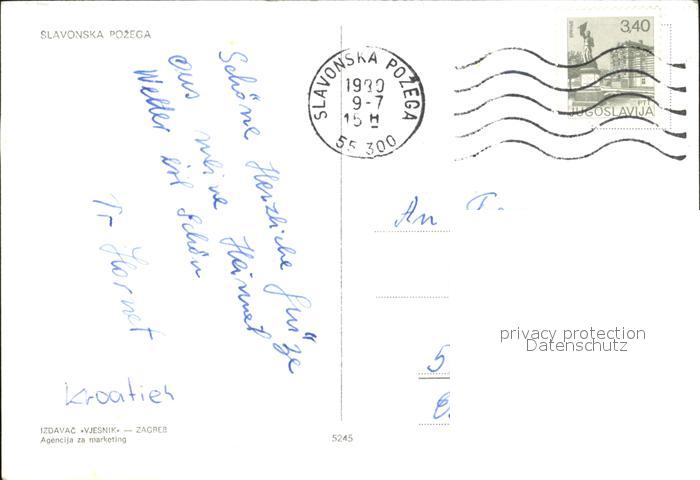 SLAVONSKA POŽEGA
Schöne Herzliche Grüße
aus meine Heimmat
Wetter ist Schön
Hornet
Kroatien
IZDAVAČ »VJESNIK« — ZAGREB
Agencija za marketing
5245
SLAVONSKA POŽEGA
1980
9-7
15 H
55 300
3,40
PTT
JUGOSLAVIJA
An
5
privacy protection
Datenschutz